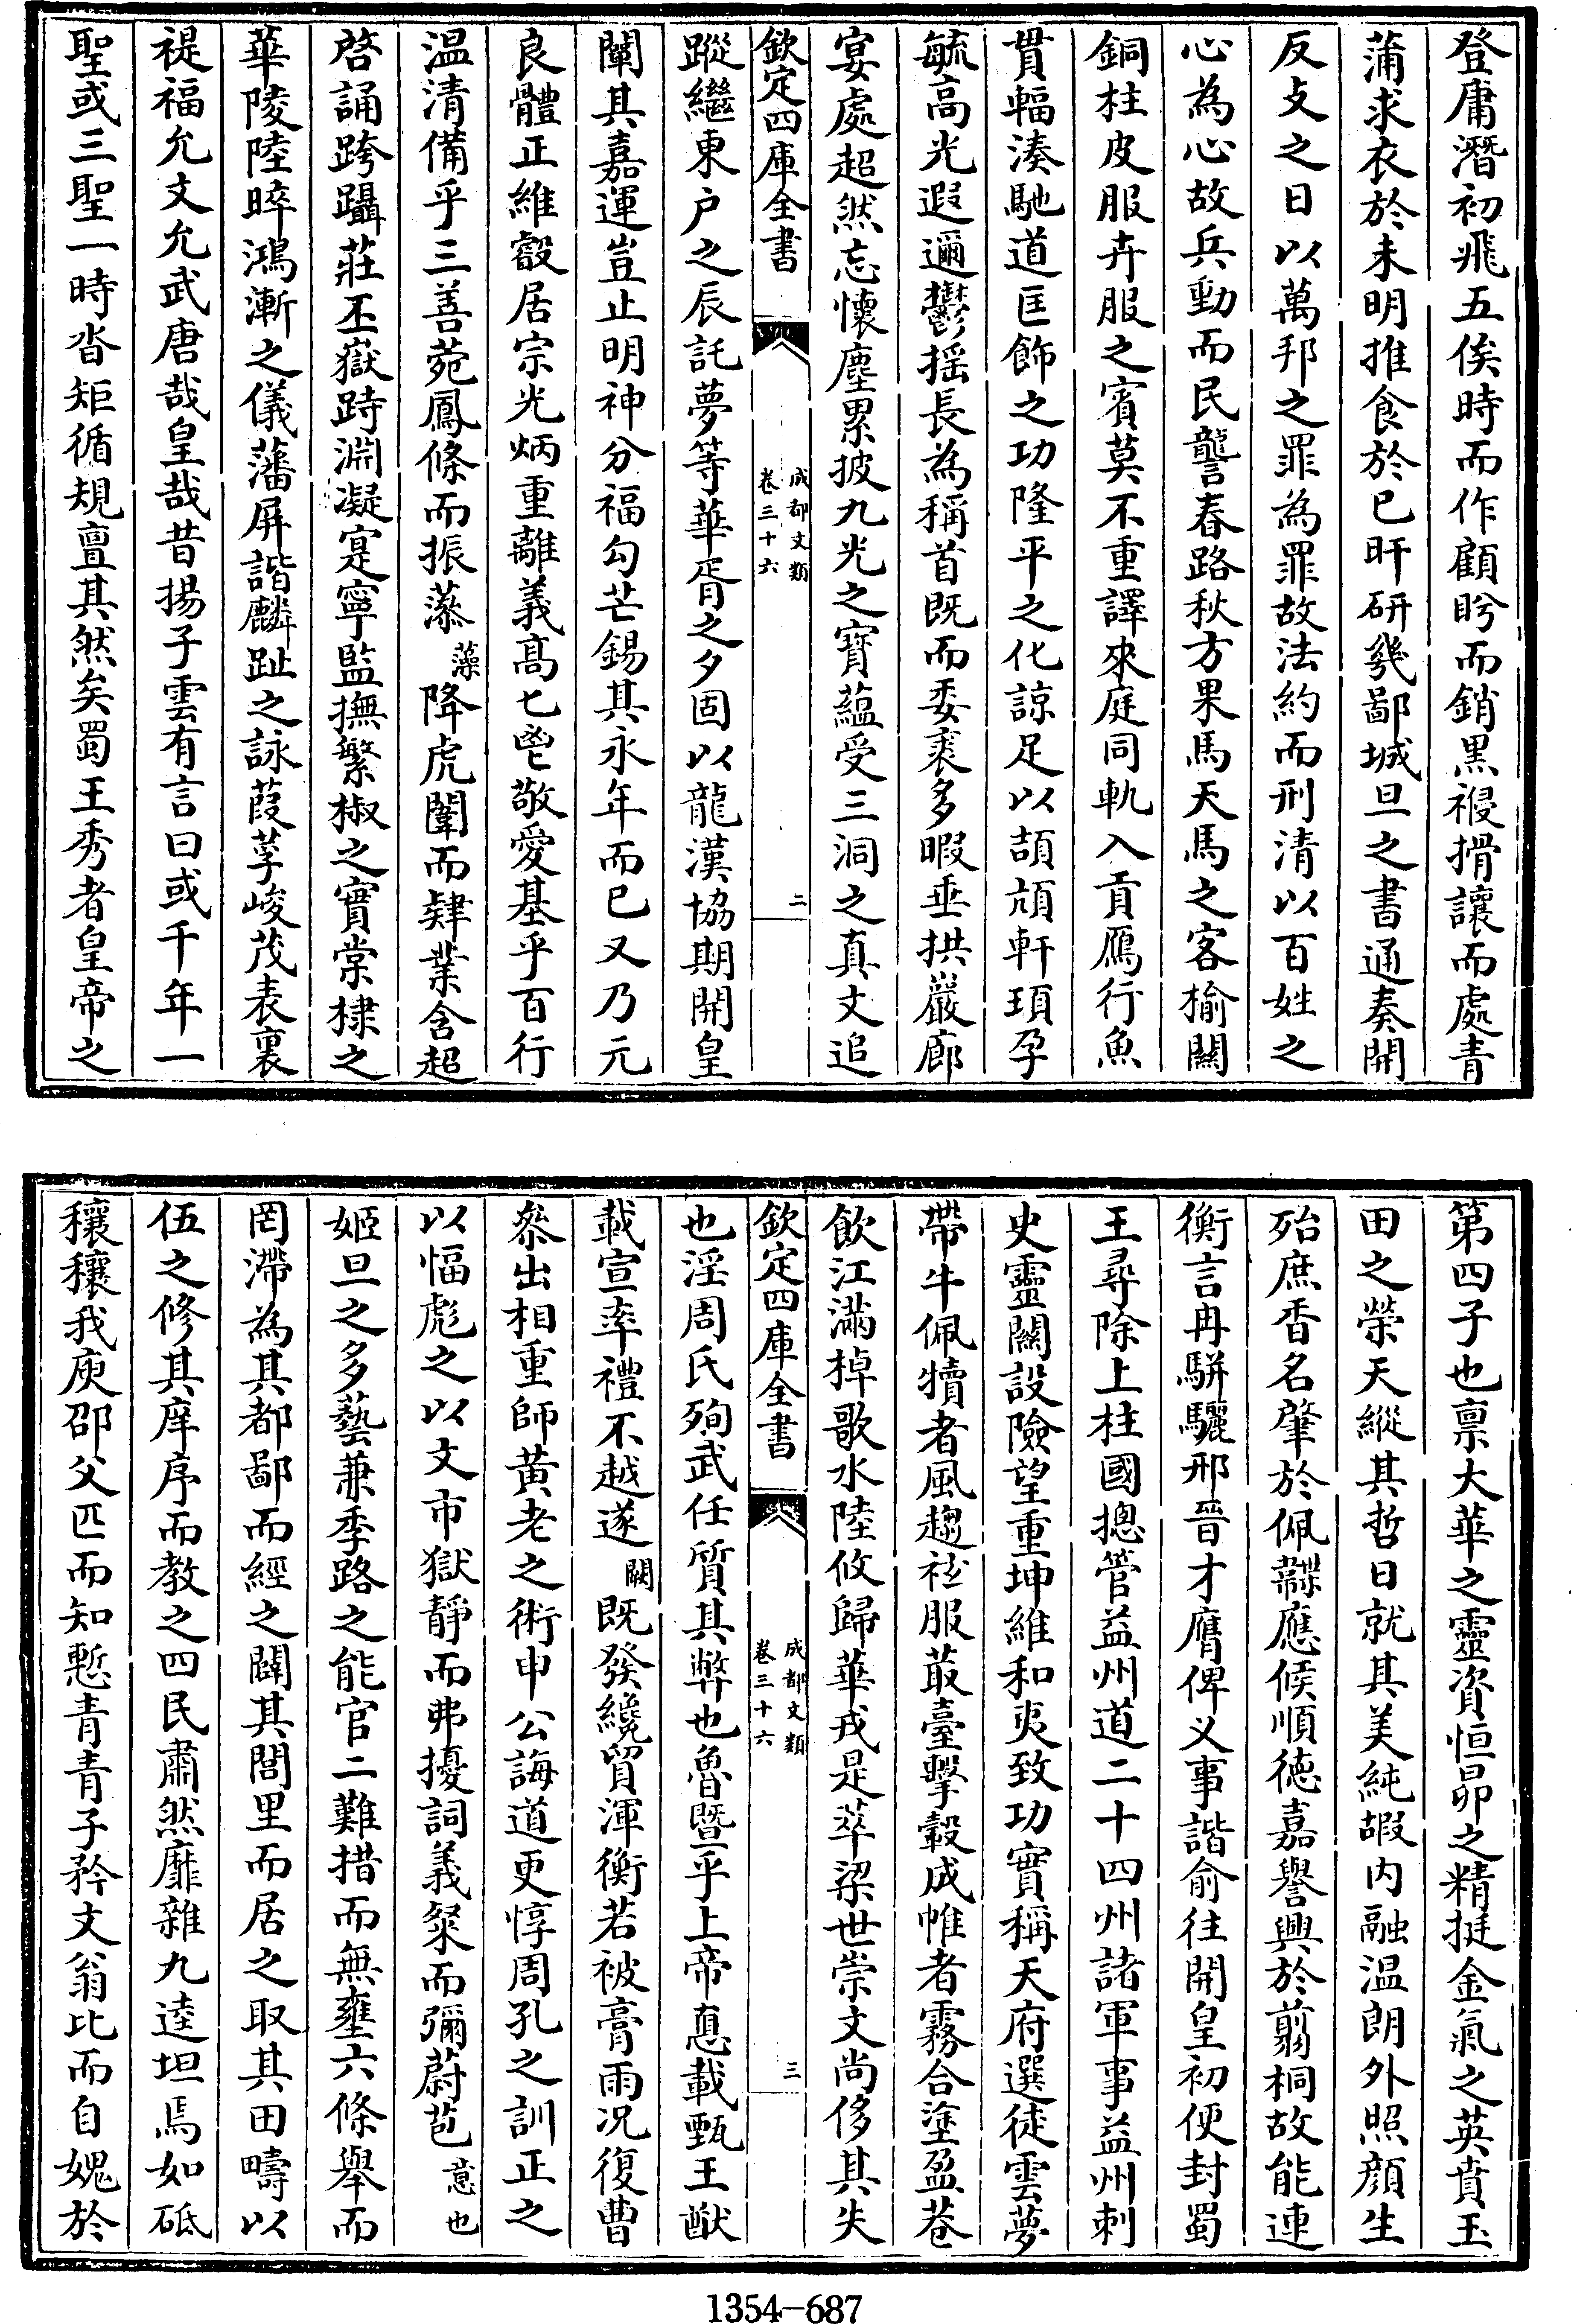 登庸潛初飛五俟時而作顧盻而銷黒祲揖讓而處青
蒲求衣於未明推食於已旰研幾鄙城旦之書通奏開
反攴之日以萬邦之罪為罪故法約而刑清以百姓之
心為心故兵動而民讋春路秋方果馬天馬之客榆關
銅柱皮服卉服之賓莫不重譯來庭同軌入貢鴈行魚
貫輻湊馳道匡飾之功隆平之化諒足以頡頏軒頊孕
毓高光遐邇鬱揺長為稱首既而委裘多暇垂拱巖廊
宴處超然忘懐塵累披九光之寳蘊受三洞之真文追
欽定四庫全書
成都文類
卷三十六
二
蹤繼東户之辰託夢等華胥之夕固以龍漢協期開皇
闡其嘉運豈止明神分福勾芒錫其永年而已又乃元
良體正維翽居宗光炳重離義髙七鬯敬愛基乎百行
温清備乎三善菀鳳條而振蔱藻降虎闈而肄業含超
啓誦跨躡莊丕嶽跱淵凝寔寧監撫繁椒之實棠棣之
華陵陸睟鴻漸之儀藩屏諧麟趾之詠葭莩峻茂表裏
禔福允文允武唐哉皇哉昔揚子雲有言曰或千年一
聖或三聖一時沓矩循規亶其然矣蜀王秀者皇帝之
第四子也禀大華之靈資恒昴之精挺金氣之英賁玉
田之榮天縱其哲日就其美純嘏内融温朗外照顔生
殆庶香名肇於佩韘應候順徳嘉譽興於翦桐故能連
衡言冉騈驪邢晉才膺俾乂事諧俞往開皇初便封蜀
王尋除上柱國揔管益州道二十四州諸軍事益州刺
史靈關設險望重坤維和夷致功實稱天府選徒雲夢
帶牛佩犢者風趨袨服叢臺擊轂成帷者霧合塗盈巷
飲江滿棹歌水陸攸歸華戎是萃梁世崇文尚侈其失
欽定四庫全書
成都文類
卷三十六
三
也淫周氏殉武任質其弊也魯暨乎上帝悳載甄王猷
載宣率禮不越遂闕既發纔貿渾衡若被膏雨况復曹
叅出相重師黄老之術申公誨道更惇周孔之訓正之
以愊彪之以文市獄靜而弗擾詞義粲而彌蔚苞意也
姬旦之多藝兼季路之能官二難措而無壅六條舉而
罔滯為其都鄙而經之闢其閭里而居之取其田疇以
伍之修其庠序而教之四民肅然靡雜九逵坦焉如砥
穰穰我庾邵父匹而知慙青青子矜文翁比而自媿於
1354-687